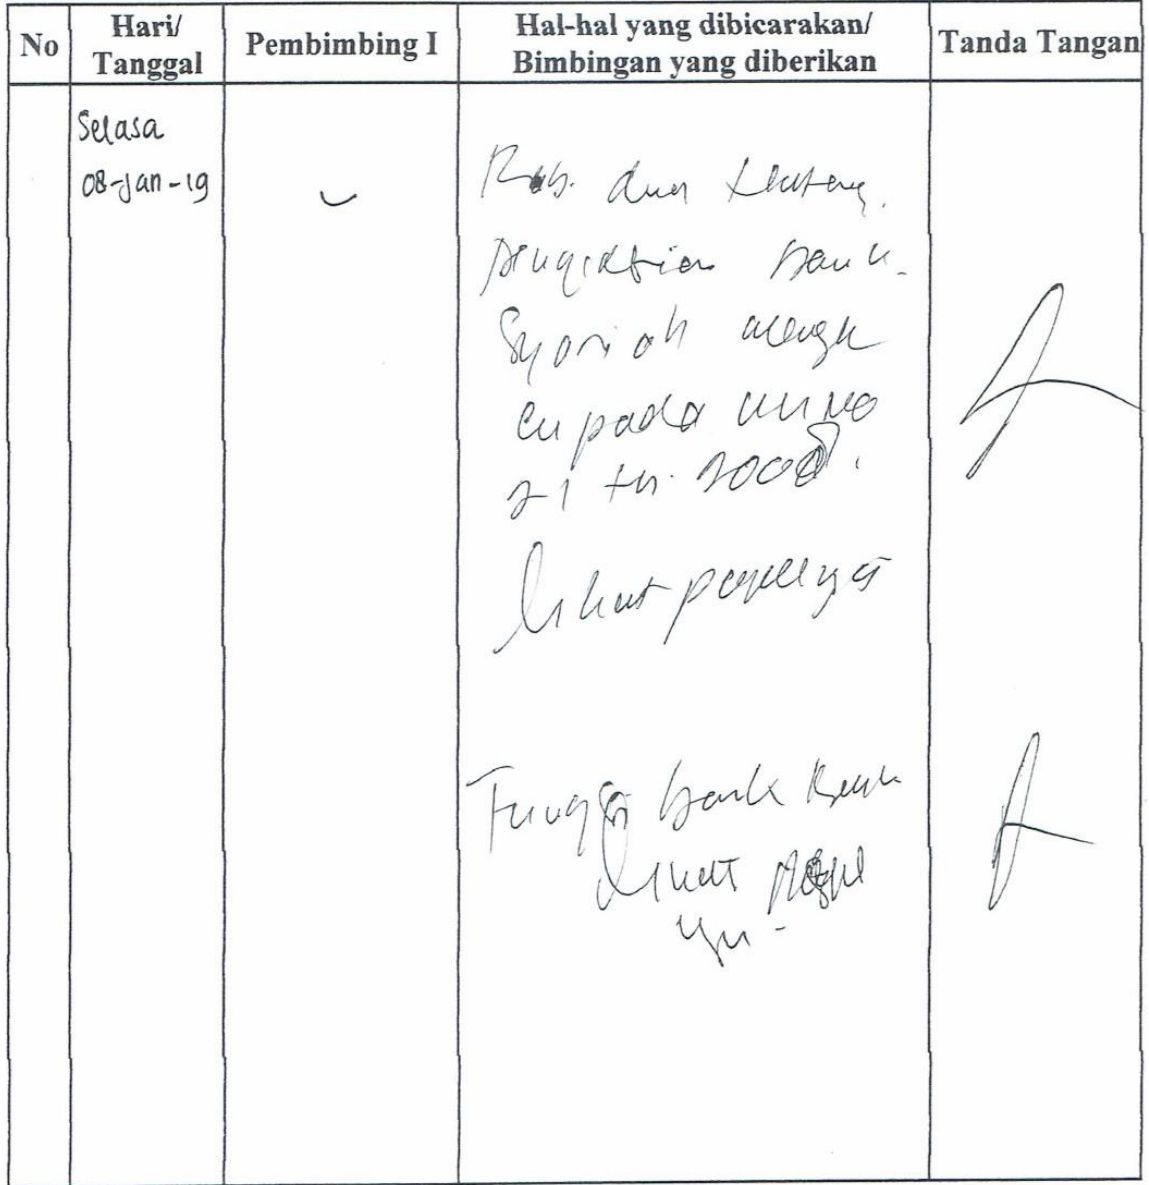 No
Hari/
Tanggal
Pembimbing I
Hal-hal yang dibicarakan/
Bimbingan yang diberikan
Tanda Tangan
Selasa
08-Jan-19
Bab. dua tentang
pengertian bank
Syariah mengu
cu pada UU NO
21 th. 2008.
lihat
Fungsi bank
lihat